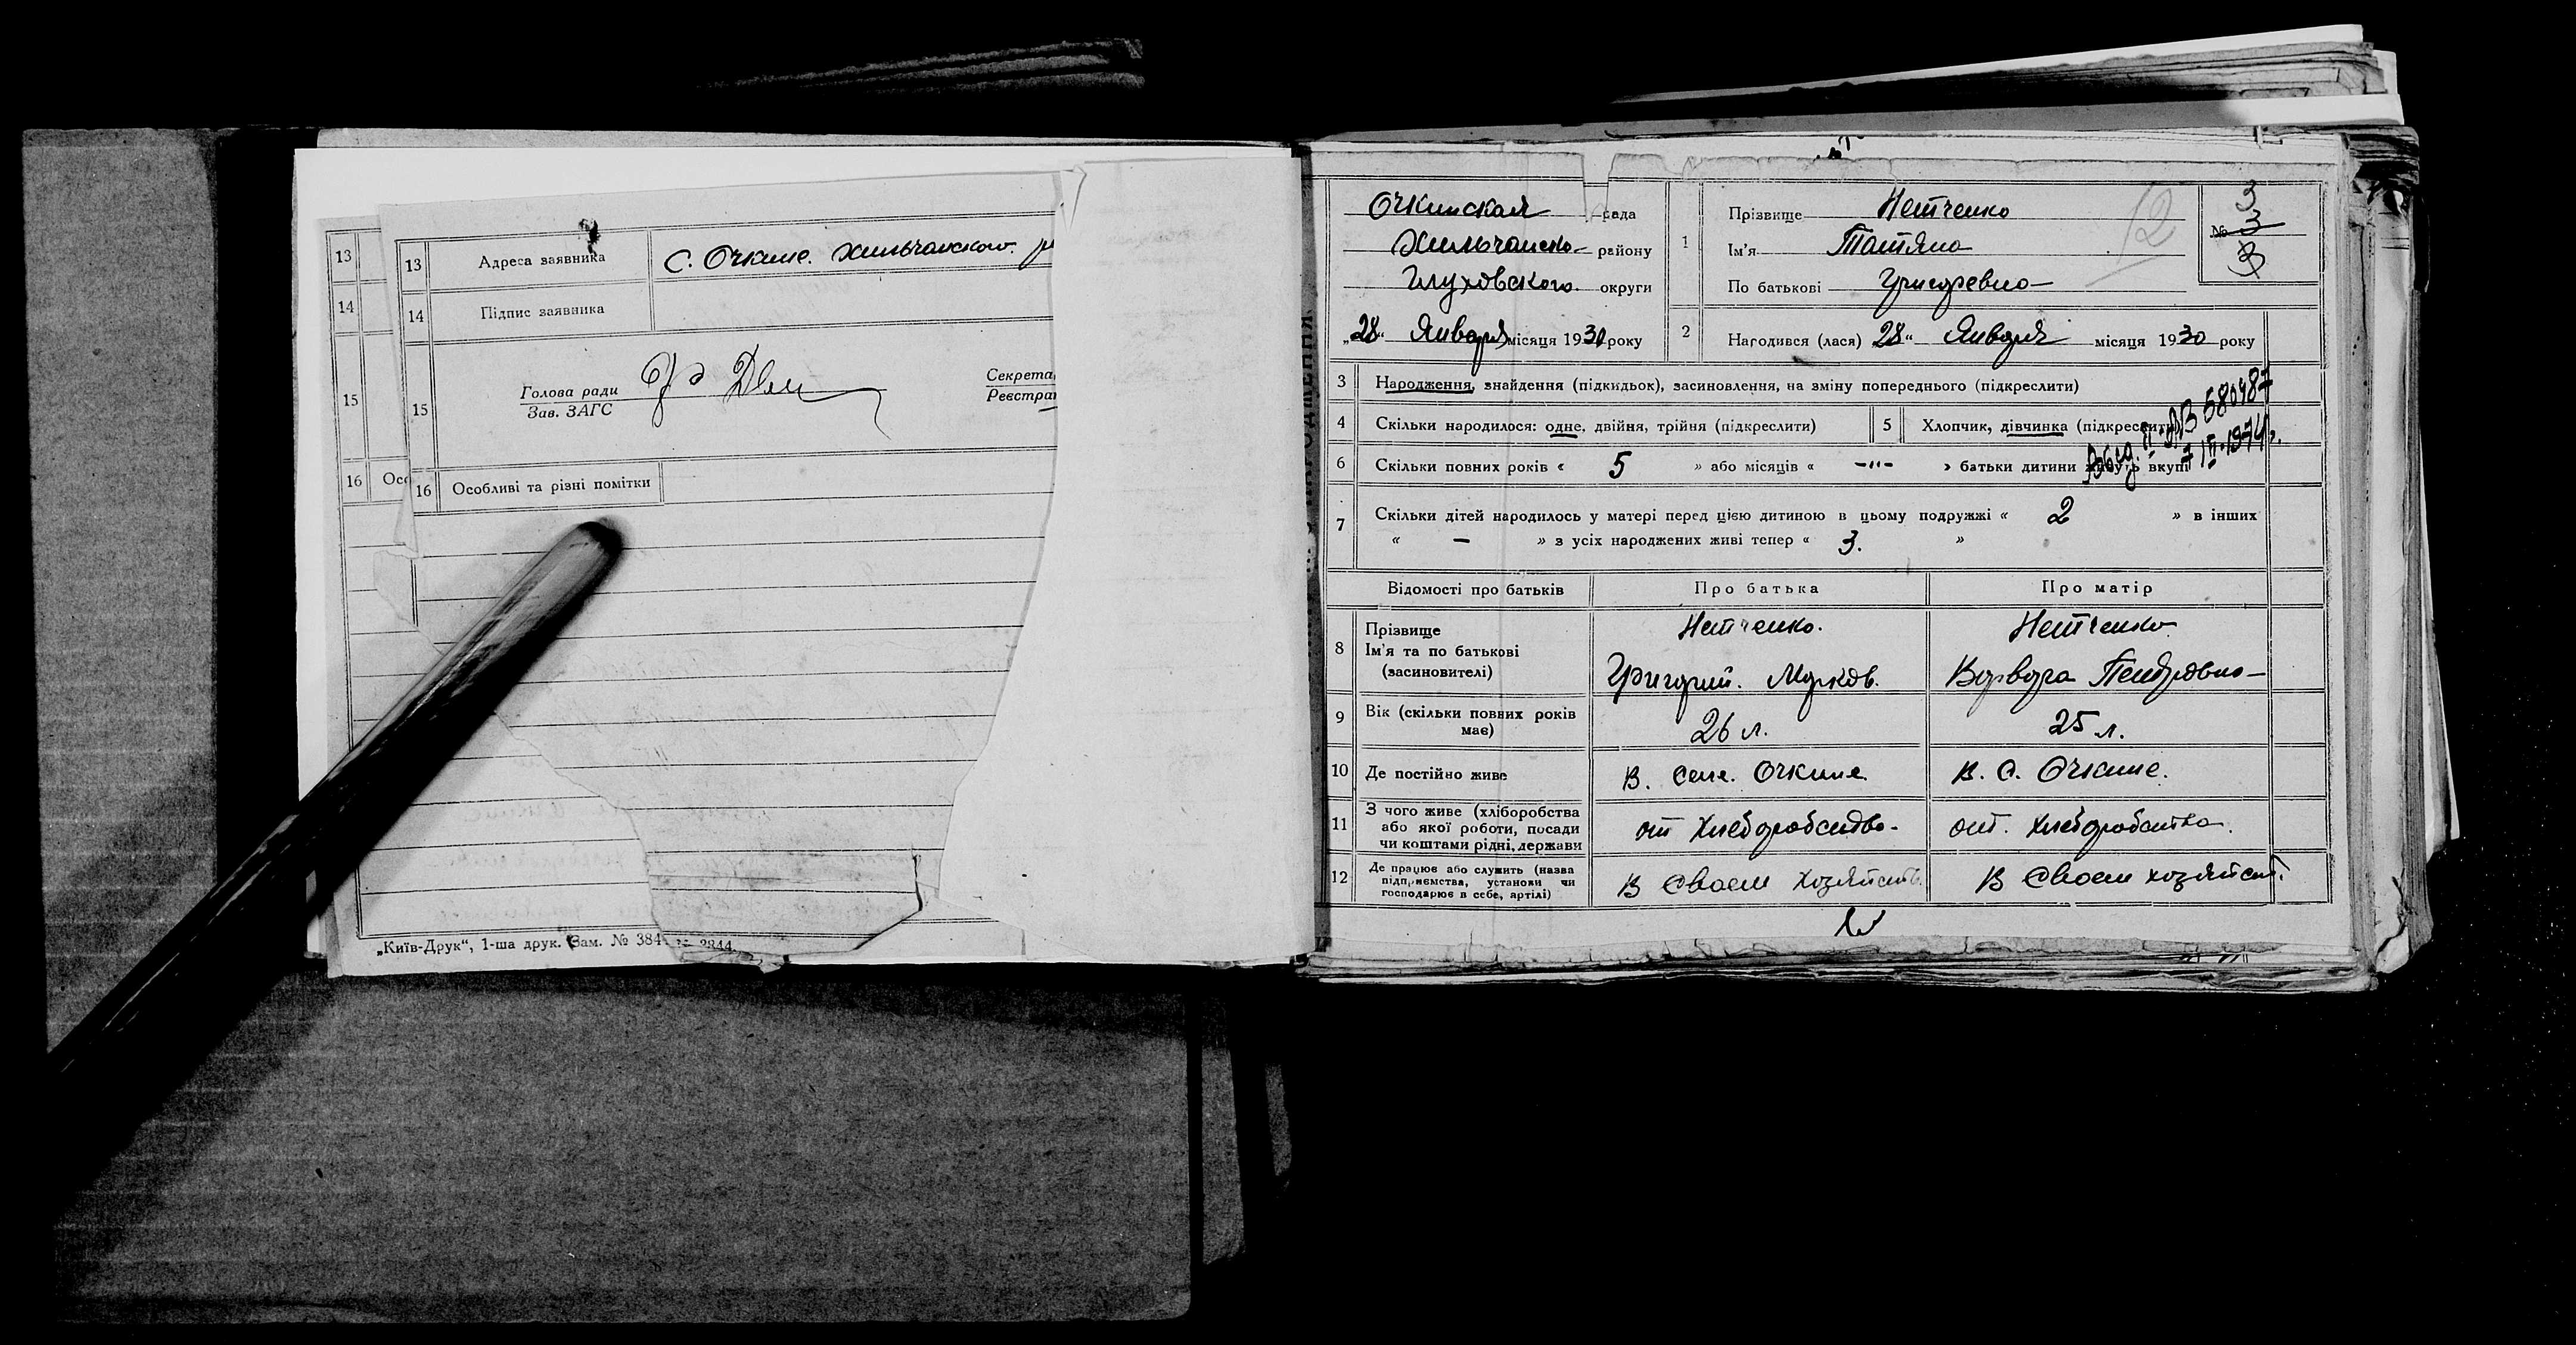 13
13 Адреса заявника С. Очкине. Хильчанского. р
14
14 Підпис заявника
15
15 Голова ради
Зав. ЗАГС
Секрета
Реєстра
16 Осо
16 Особливі та різні помітки
„Київ-Друк“, 1-ша друк. Зам. № 384 № 3844.
Очкинская рада
Хильчанско- району
Глуховского. округи
„28“ Января місяця 1930 року
1 Прізвище Нетченко
Ім'я Татяна
По батькові Григоревна
12
3
№ 3
3
2 Народився (лася) 28“ Января місяця 1930 року
3 Народження, знайдення (підкидьок), засиновлення, на зміну попереднього (підкреслити)
4 Скільки народилося: одне, двійня, трійня (підкреслити)
5 Хлопчик, дівчинка (підкреслити)
6 Скільки повних років « 5 » або місяців « -"- » батьки дитини живуть вкупі
580487
7 Скільки дітей народилось у матері перед цією дитиною в цьому подружжі « 2 » в інших
« – » з усіх народжених живі тепер « 3. »
Відомості про батьків Про батька Про матір
8 Прізвище
Ім'я та по батькові
(засиновителі)
Нетченко.
Григорий. Марков.
Нетченко
Варвара
9 Вік (скільки повних років
має)
26 л.
25 л.
10 Де постійно живе В. Селе. Очкине В. С. Очкине.
11 З чого живе (хліборобства
або якої роботи, посади
чи коштами рідні, держави
от Хлеборобства.
от. Хлеборобства.
12 Де працює або служить (назва
підприємства, установи чи
господарює в себе, артілі)
В Своем хозяйств.
В Своем хозяйст.